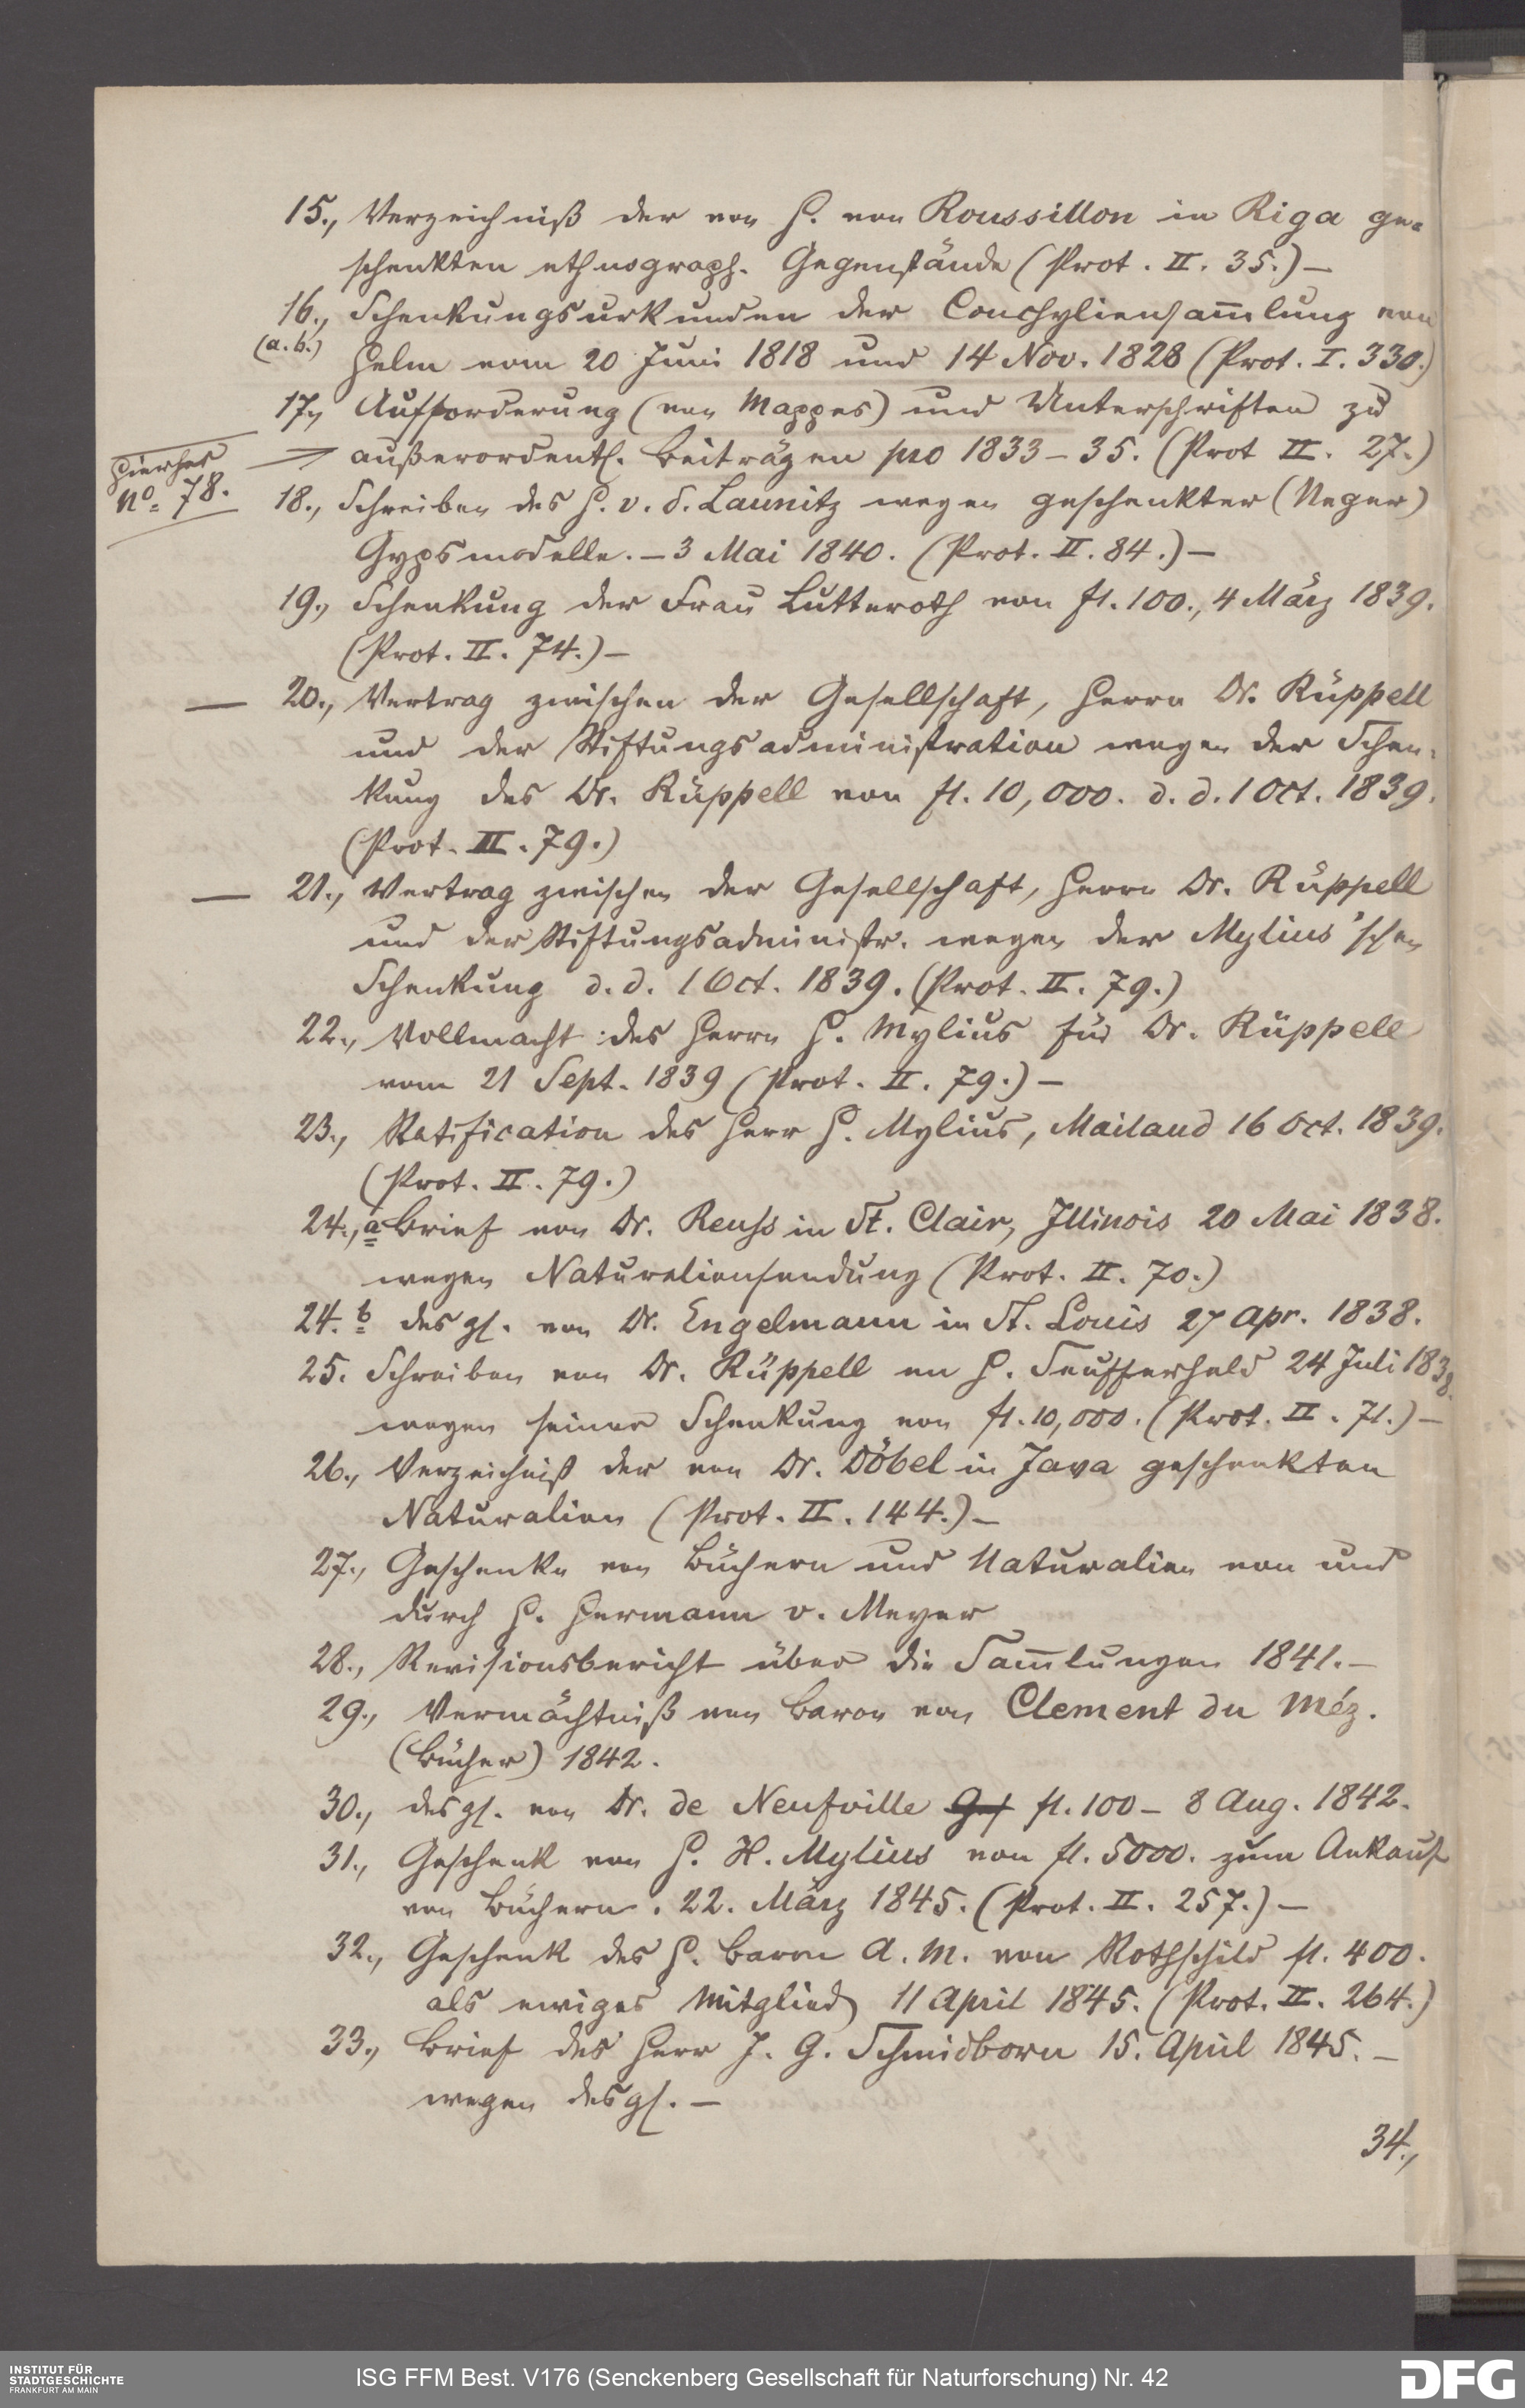 15., Verzeichniß der von H. von Roussillon in Riga ge-
schenkten ethnograph. Gegenstände (Prot. II. 35.) —
16., Schenkungsurkunden der Conchyliensam̄lung von
(a. b.)
Helm vom 20 Juni 1818 und 14 Nov. 1828 (Prot. I. 330.)
17., Aufforderung (von Mappes) und Unterschriften zu
außerordentl. Beiträgen pro 1833 – 35. (Prot II. 27.)
hierher
No. 78.
18., Schreiben des H. v. d. Launitz wegen geschenkter (Neger)
Gypsmodelle. – 3 Mai 1840. (Prot. II. 84.) —
19., Schenkung der Frau Lutteroth von fl. 100., 4 März 1839.
(Prot. II. 74.) —
— 20., Vertrag zwischen der Gesellschaft, Herrn Dr. Rüppell
und der Stiftungsadministration wegen der Schen-
kung des Dr. Rüppell von fl. 10,000. d. d. 1 Oct. 1839.
(Prot. II. 79.)
— 21., Vertrag zwischen der Gesellschaft, Herrn Dr. Rüppell
und der Stiftungsadministr. wegen der Mylius'schen
Schenkung d. d. 1 Oct. 1839. (Prot. II. 79.)
22., Vollmacht des Herrn H. Mylius für Dr. Rüppell
vom 21 Sept. 1839 (Prot. II. 79.) —
23., Ratification des Herr H. Mylius, Mailand 16 Oct. 1839.
(Prot. II. 79.)
24., a Brief von Dr. Reuss in St. Clair, Illinois 20 Mai 1838.
wegen Naturaliensendung (Prot. II. 70.)
24. b desgl. von Dr. Engelmann in St. Louis 27 Apr. 1838.
25. Schreiben von Dr. Rüppell an H. Seufferheld 24 Juli 1838.
wegen seiner Schenkung von fl. 10,000. (Prot. II. 71.) —
26., Verzeichniß der von Dr. Döbel in Java geschenkten
Naturalien (Prot. II. 144.) —
27., Geschenke von Büchern und Naturalien von und
durch H. Hermann v. Meyer
28., Revisionsbericht über die Sam̄lungen 1841. —
29., Vermächtniß von Baron von Clement du Méz.
(Bücher) 1842.
30., desgl. von Dr. de Neufville fl. 100 – 8 Aug. 1842.
31., Geschenk von H. H. Mylius von fl. 5000. zum Ankauf
von Büchern. 22. März 1845. (Prot. II. 257.) —
32., Geschenk des H. Baron A. M. von Rothschild fl. 400.
als ewiges Mitglied 11 April 1845. (Prot. II. 264.)
33., Brief des Herr J. G. Schmidborn 15. April 1845. —
wegen desgl. —
34.,
INSTITUT FÜR
STADTGESCHICHTE
FRANKFURT AM MAIN
ISG FFM Best. V176 (Senckenberg Gesellschaft für Naturforschung) Nr. 42
DFG